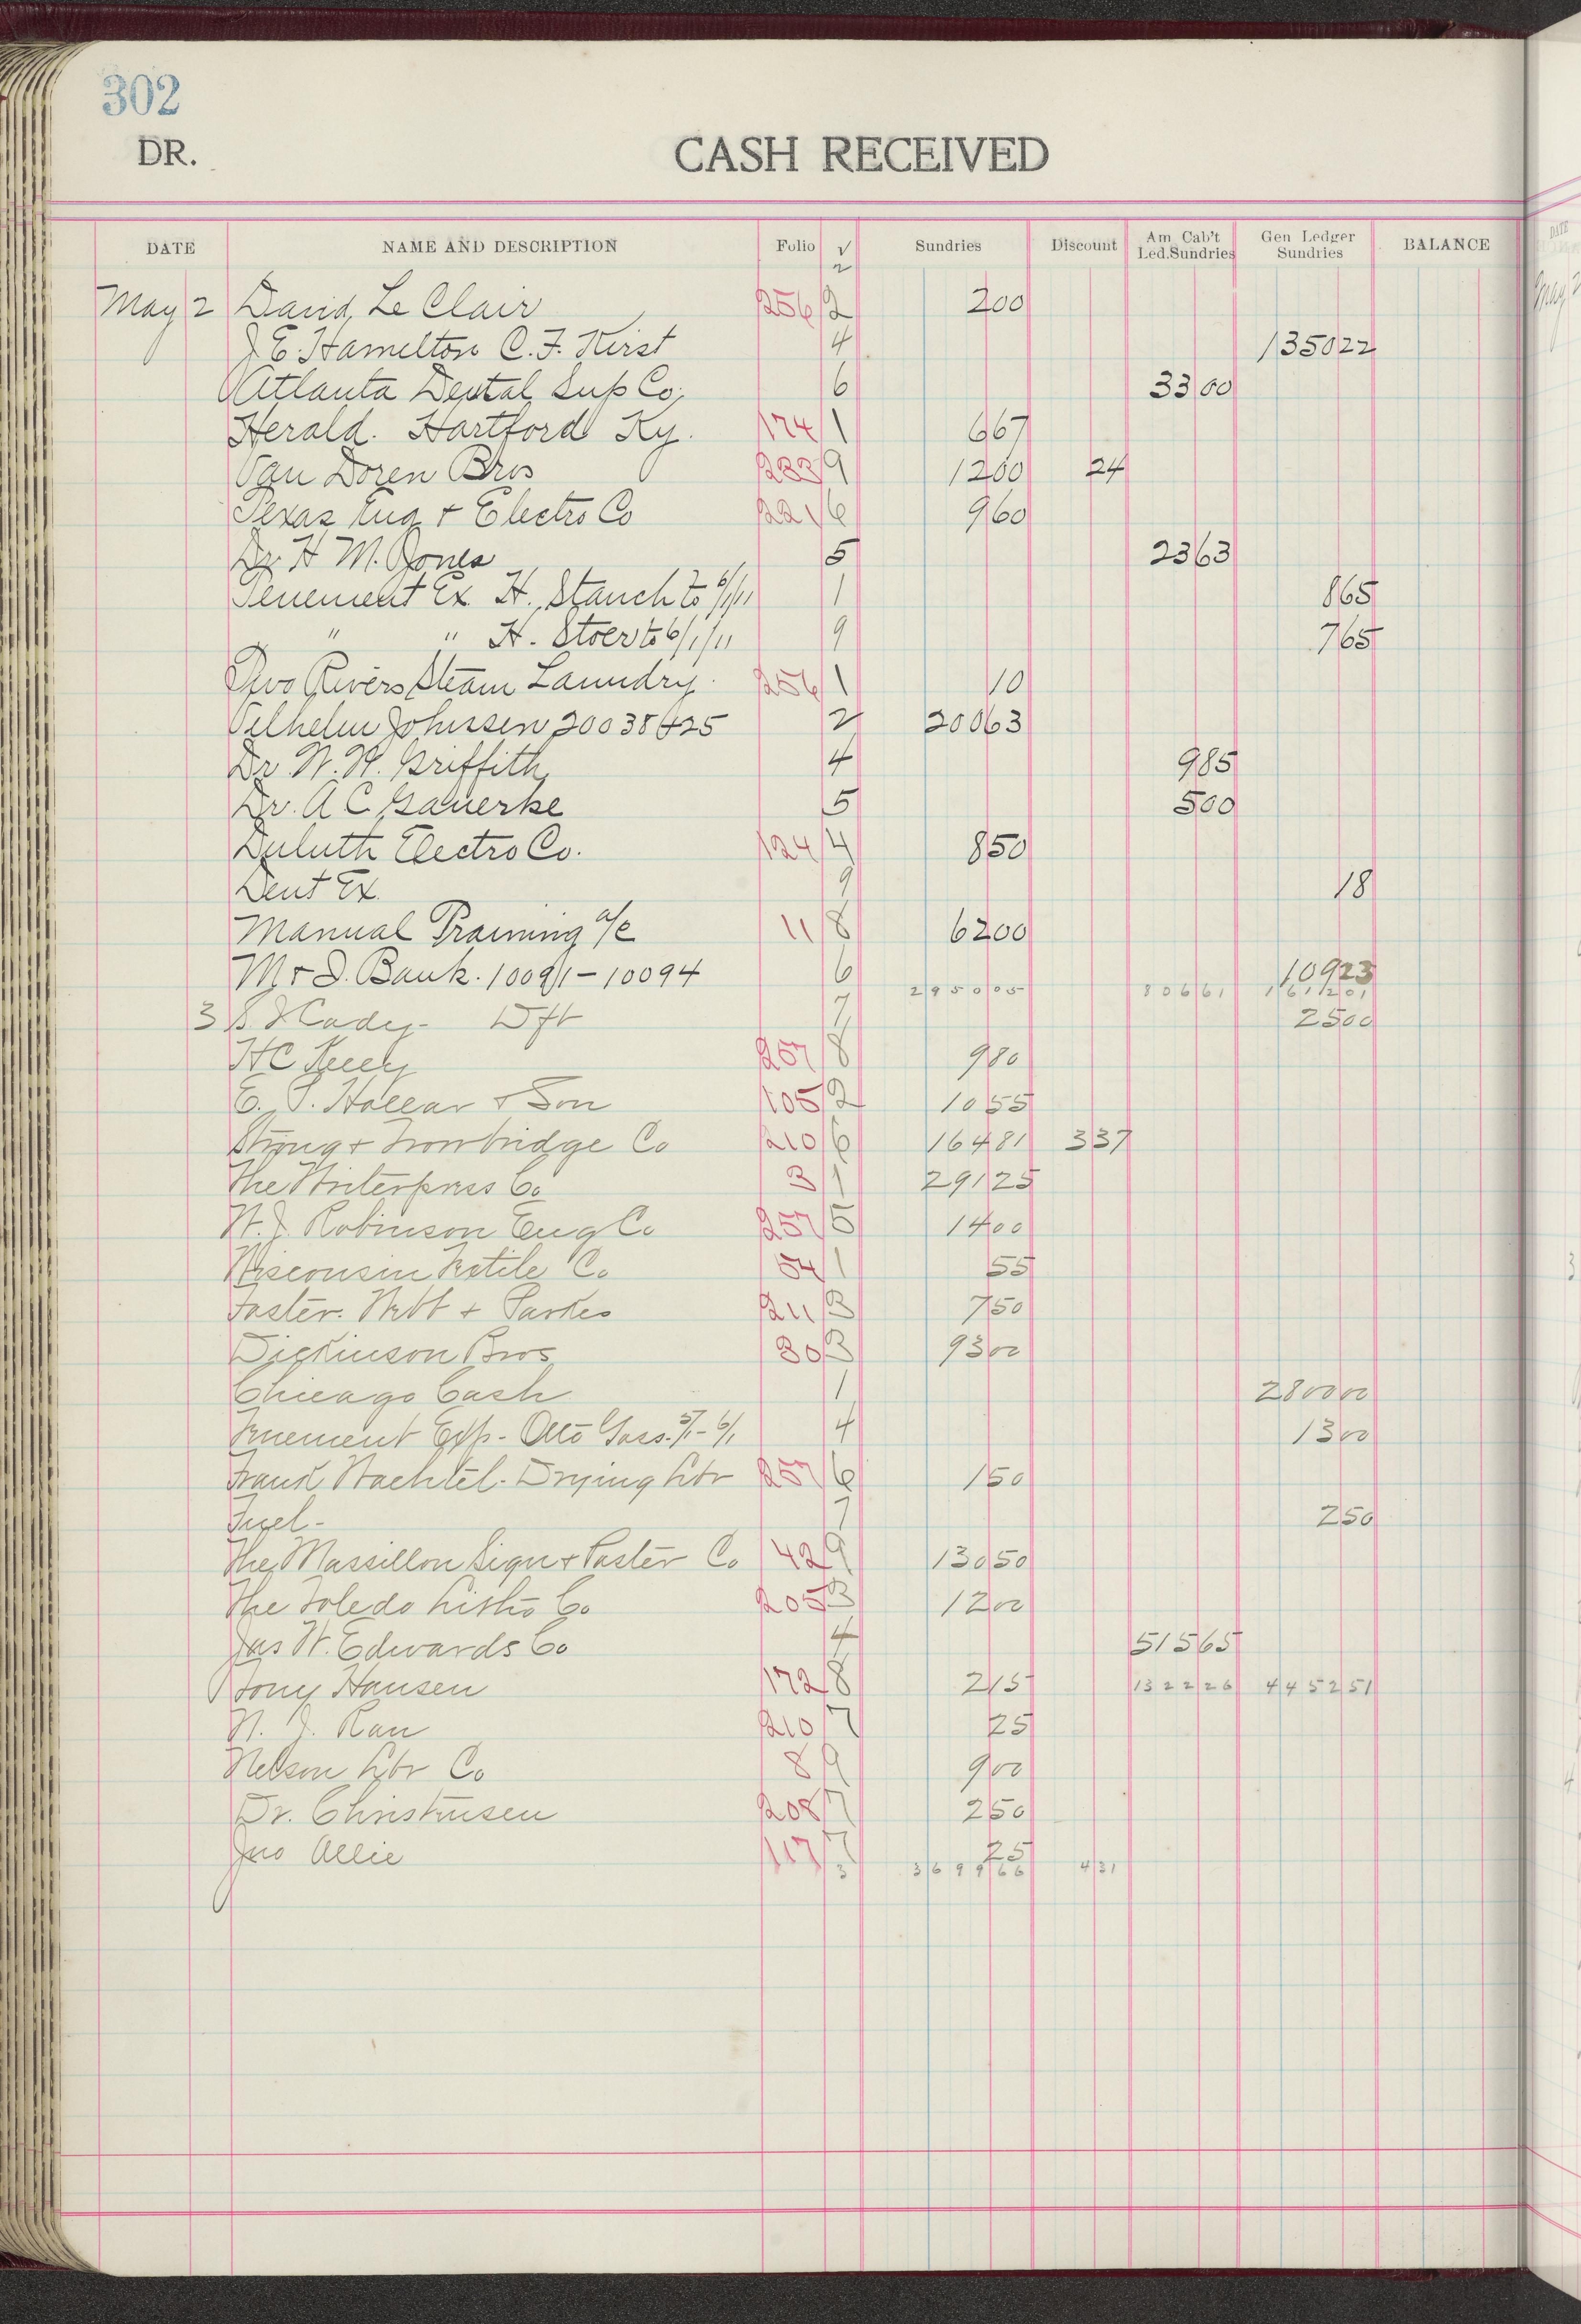 302
DR.
CASH RECEIVED
DATE NAME AND DESCRIPTION Folio √ Sundries Discount Am Cab't Led.Sundries Gen Ledger Sundries BALANCE
2
May 2 David Le Clair 256 2 200
J E. Hamilton C. F. Kirst 4 135022
Atlanta Dental Sup Co. 6 3300
Herald. Hartford Ky. 174 1 667
Van Doren Bros 233 9 1200 24
Texas Eng + Electro Co 221 6 960
Dr. H M. Jones 5 2363
Tenement Ex. H. Stauch to 6/1/11 1 865
" " H. Stoer to 6/1/11 9 765
Two Rivers Steam Laundry 256 1 10
Vilhelm Johnsen 20038 + 25 2 20063
Dr. W. H. Griffith 4 985
Dr. A C Gauerke 5 500
Duluth Electro Co. 124 4 850
Dent Ex. 9 18
Manual Training a/c 11 8 6200
M + S. Bank. 10091 - 10094 6 10923
295005 80661 161201
3 Cady - Dft 7 2500
H C Keely 257 8 980
E. P. Hollar + Son 105 2 1055
Strong + Trowbridge Co 210 6 16481 337
The Writerpress Co 3 1 29125
W. J. Robinson Eng Co 257 5 1400
Wisconsin Textile Co 54 1 55
Foster. Webb + Parkes 211 3 750
Dickinson Bros 30 3 9300
Chicago Cash 1 280000
Tenement Exp - Otto Gass. 5/1 - 6/1 4 1300
Frank Wachtel - Drying Lbr 257 6 150
Fuel - 7 250
The Massillon Sign + Poster Co 42 9 13050
The Toledo Litho Co 205 3 1200
Jas W. Edwards Co 4 51565
Tony Hansen 172 8 215 132226 445251
N. J. Rau 210 7 25
Nelson Lbr Co 8 9 900
Dr. Christensen 208 7 250
Jno Allie 117 7 25
3 369966 431